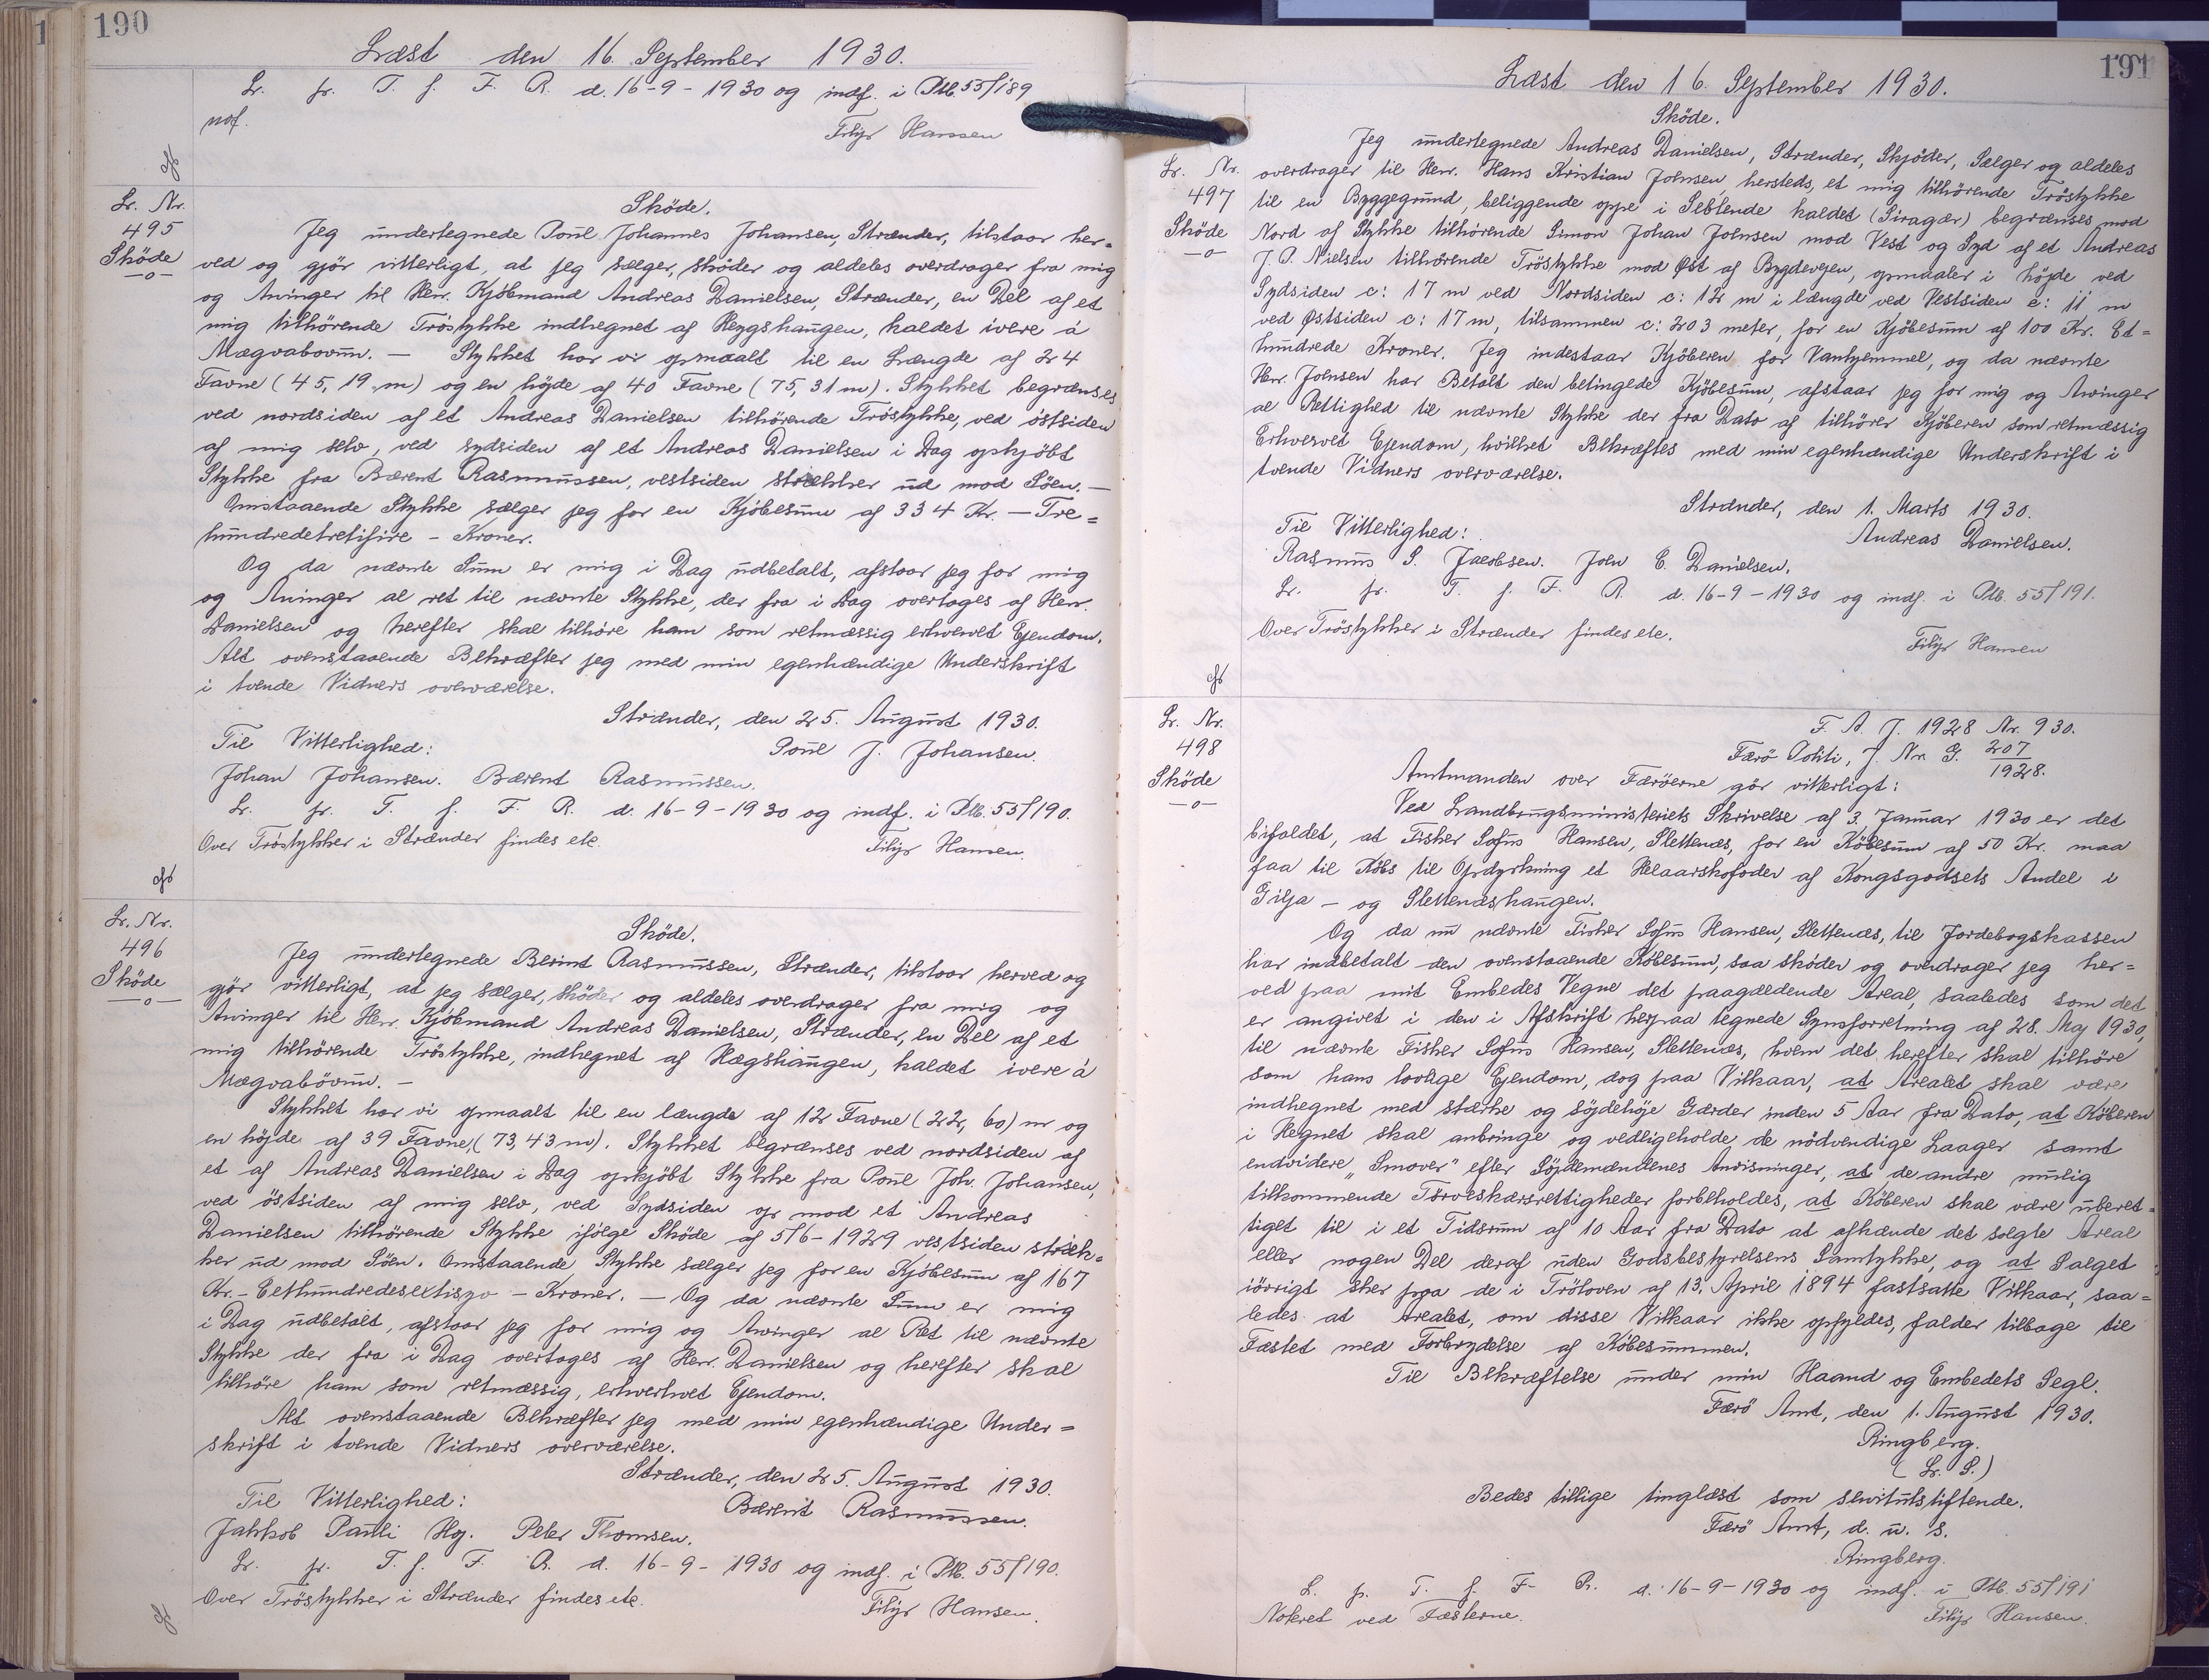 190
Læst den 16. September 1930.
L. pr. T. f. F. R. d. 16-9-1930 og indf. i Ptb. 55/189
nof.
Filip Hansen
L. Nr.
495
Sköde
—o—
Sköde.
Jeg undertegnede Poul Johannes Johansen, Strænder, tilstaar her=
ved og gjör vitterligt, at jeg sælger, sköder og aldeles overdrager fra mig
og Arvinger til Herr. Kjöbmand Andreas Danielsen, Strænder, en Del af et
mig tilhörende Tröstykke indhegnet af Heygshaugen, kaldet ivere á
Mægvabövum. — Stykket har vi opmaalt til en Længde af 24
Favne (45,19 m) og en höjde af 40 Favne (75,31 m). Stykket begrænses
ved nordsiden af et Andreas Danielsen tilhörende Tröstykke, ved östsiden
af mig selv, ved sydsiden af et Andreas Danielsen i Dag opkjöbt
Stykke fra Bærent Rasmussen, vestsiden strækker ud mod Söen. —
Omstaaende Stykke sælger jeg for en Kjöbesum af 334 Kr. — Tre=
hundredetretifire - Kroner.
Og da nævnte Sum er mig i Dag udbetalt, afstaar jeg for mig
og Arvinger al ret til nævnte Stykke, der fra i Dag overtages af Herr.
Danielsen og herefter skal tilhöre ham som retmæssig erhvervet Ejendom.
Alt ovenstaaende Bekræfter jeg med min egenhændige Underskrift
i tvende Vidners overværelse.
Strænder, den 25. August 1930.
Til Vitterlighed:
Poul J. Johansen.
Johan Johansen. Bærent Rasmussen.
L. pr. T. f. F. R. d. 16-9-1930 og indf. i Ptb. 55/190.
Over Tröstykker i Strænder findes etc.
Filip Hansen.
L. Nr.
496
Sköde
—o—
Sköde.
Jeg undertegnede Berint Rasmussen, Strænder, tilstaar herved og
gjör vitterligt, at jeg sælger, sköder og aldeles overdrager fra mig og
Arvinger til Herr. Kjöbmand Andreas Danielsen, Strænder, en Del af et
mig tilhörende Tröstykke, indhegnet af Hægshaugen, kaldet ivere á
Mægvabövum. —
Stykket har vi opmaalt til en længde af 12 Favne (22,60) m og
en höjde af 39 Favne, (73,43 m). Stykket begrænses ved nordsiden af
et af Andreas Danielsen i Dag opkjöbt Stykke fra Poul Joh. Johansen,
ved östsiden af mig selv, ved Sydsiden op mod et Andreas
Danielsen tilhörende Stykke ifölge Sköde af 5/6-1929 vestsiden stræk=
ker ud mod Söen. Omstaaende Stykke sælger jeg for en Kjöbesum af 167
Kr. - Eethundredesextisyv - Kroner. — Og da nævnte Sum er mig
i Dag udbetalt, afstaar jeg for mig og Arvinger al Ret til nævnte
Stykke der fra i Dag overtages af Herr. Danielsen og herefter skal
tilhöre ham som retmæssig, erhverhvet Ejendom.
Alt ovenstaaende Bekræfter jeg med min egenhændige Under=
skrift i tvende Vidners overværelse.
Strænder, den 25. August 1930.
Til Vitterlighed:
Bærent Rasmussen.
Jakkob Pauli Hg. Peter Thomsen.
L. pr. T. f. F. R. d. 16-9-1930 og indf. i Ptb. 55/190.
Over Tröstykker i Strænder findes etc.
Filip Hansen.
191
Læst den 16. September 1930.
L. Nr.
497
Sköde
—o—
Sköde.
Jeg undertegnede Andreas Danielsen, Strænder, Skjöder, Sælger og aldeles
overdrager til Herr. Hans Kristian Joensen, hersteds, et mig tilhörende Tröstykke
til en Byggegrund, beliggende oppe i Seblende kaldet (Siragær) begrænses mod
Nord af Stykke tilhörende Simon Johan Joensen mod Vest og Syd af et Andreas
J. P. Nielsen tilhörende Tröstykke mod Øst af Bygdevejen, opmaaler i höjde ved
Sydsiden c: 17 m ved Nordsiden c: 12 m i længde ved Vestsiden c: 11 m
ved Østsiden c: 17 m, tilsammen c: 203 meter, for en Kjöbesum af 100 Kr. Et=
hundrede Kroner. Jeg indestaar Kjöberen for Vanhjemmel, og da nævnte
Herr. Joensen har Betalt den betingede Kjöbesum, afstaar jeg for mig og Arvinger
al Rettighed til nævnte Stykke der fra Dato af tilhörer Kjöberen som retmæssig
Erhvervet Ejendom, hvilket Bekræftes med min egenhændige Underskrift i
tvende Vidners overværelse.
Strænder, den 1. Marts 1930.
Til Vitterlighed:
Andreas Danielsen.
Rasmus S. Jacobsen. Joen E. Danielsen.
L. pr. T. f. F. R. d. 16-9-1930 og indf. i Ptb. 55/191.
Over Tröstykker i Strænder findes etc.
Filip Hansen
L. Nr.
498
Sköde
—o—
F. A. J. 1928 Nr. 930.
Færö Politi, J. Nr. G. 207/1928.
Amtmanden over Færöerne gör vitterligt:
Ved Landbrugsministeriets Skrivelse af 3. Januar 1930 er det
bifaldet, at Fisker Sofus Hansen, Slettenæs, for en Köbesum af 50 Kr. maa
faa til Köbs til Opdyrkning et Helaarskofoder af Kongsgodsets Andel i
Gilja - og Slettenæshaugen.
Og da nu nævnte Fisker Sofus Hansen, Slettenæs, til Jordebogskassen
har indbetalt den ovenstaaende Köbesum, saa sköder og overdrager jeg her=
ved paa mit Embedes Vegne det paagældende Areal, saaledes som det
er angivet i den i Afskrift herpaa tegnede Synsforretning af 28. Maj 1930,
til nævnte Fisker Sofus Hansen, Slettenæs, hvem det herefter skal tilhöre
som hans lovlige Ejendom, dog paa Vilkaar, at Arealet skal være
indhegnet med stærke og söjdehöje Gærder inden 5 Aar fra Dato, at Köberen
i Hegnet skal anbringe og vedligeholde de nödvendige Laager samt
endvidere „Smover" efter Söjdemændenes Anvisninger, at de andre mulig
tilkommende Törveskærsrettigheder forbeholdes, at Köberen skal være uberet=
tiget til i et Tidsrum af 10 Aar fra Dato at afhænde det solgte Areal
eller nogen Del deraf uden Godsbestyrelsens Samtykke, og at Salget
iörrigt sker paa de i Tröloven af 13. April 1894 fastsatte Vilkaar, saa=
ledes at Arealet, om disse Vilkaar ikke opfyldes, falder tilbage til
Fæstet med Forbrydelse af Köbesummen.
Til Bekræftelse under min Haand og Embedets Segl.
Færö Amt, den 1. August 1930.
Ringberg.
(L. S.)
Bedes tillige tinglæst som servitutstiftende.
Færö Amt, d. u. s.
Ringberg.
L. p. T. f. F. R. d. 16-9-1930 og indf. i Ptb. 55/191
Noteret ved Fæsterne.
Filip Hansen.